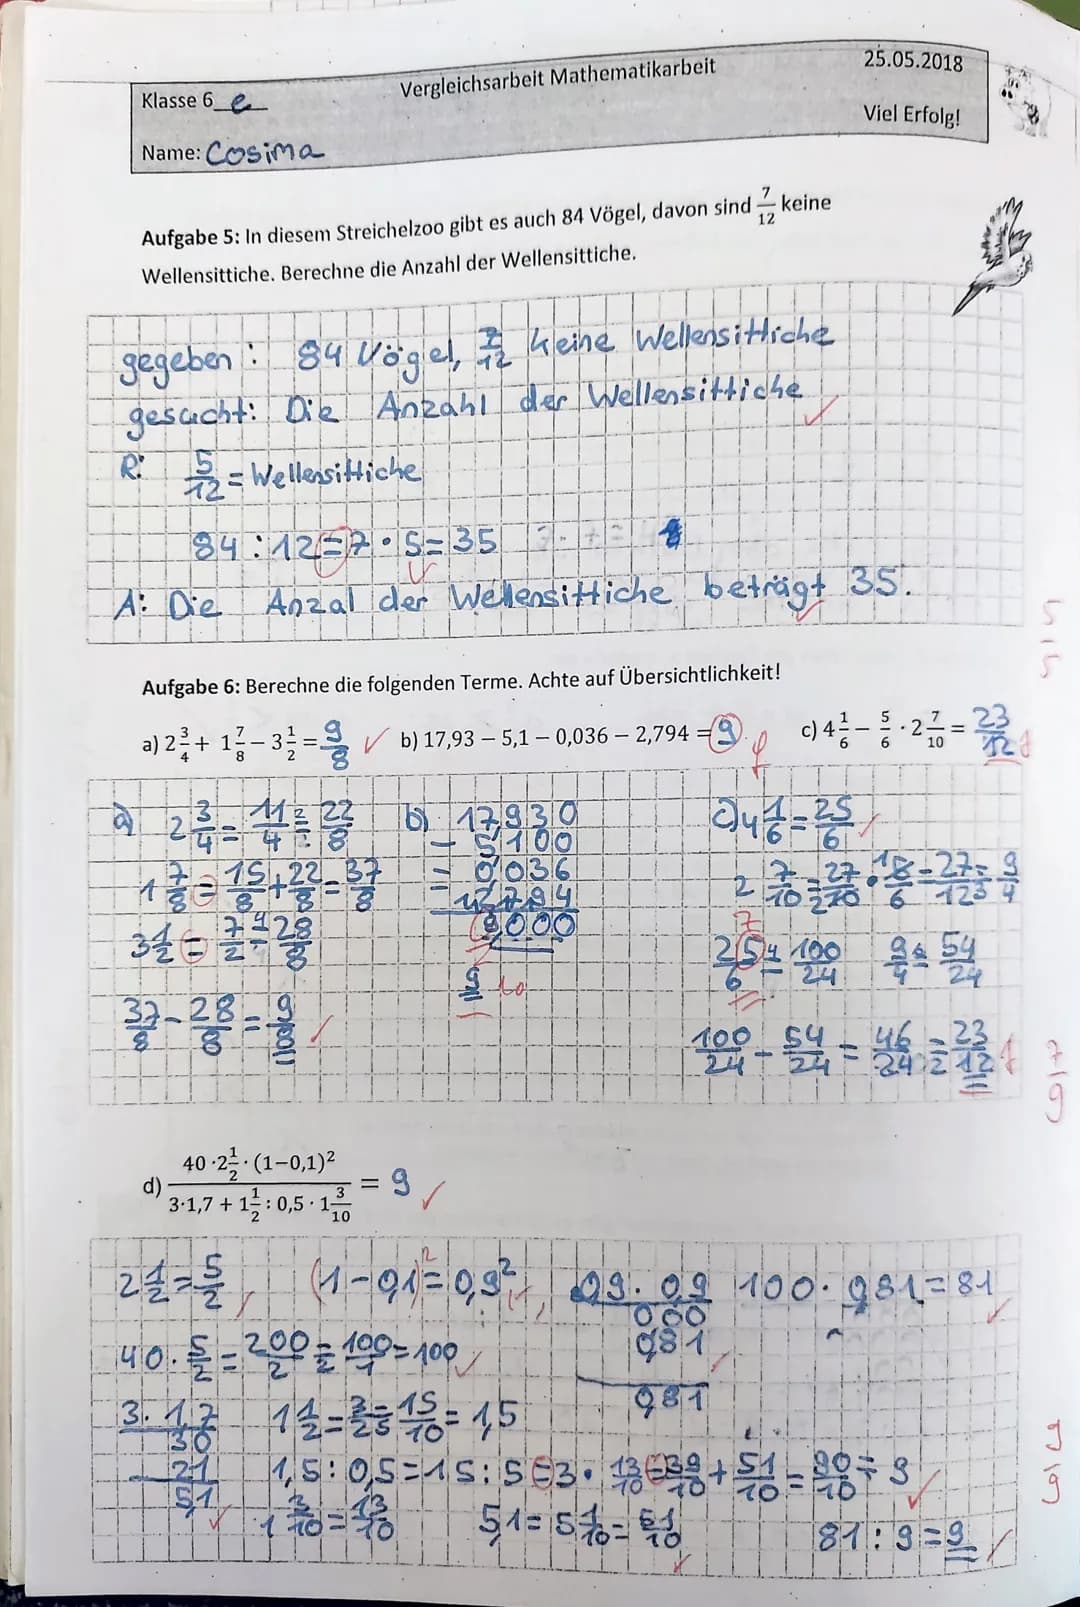 Klasse 6 e
Vergleichsarbeit Mathematikarbeit
25.05.2018
Viel Erfolg!
Name: Cosima
Aufgabe 5: In diesem Streichelzoo gibt es auch 84 Vögel, davon sind 7/12 keine
Wellensittiche. Berechne die Anzahl der Wellensittiche.
gegeben: 84 Vögel, 7/12 keine Wellensittiche
gesucht: Die Anzahl der Wellensittiche
R: 5/12 = Wellensittiche
84 : 12 = 7 · 5 = 35
A: Die Anzal der Wellensittiche beträgt 35.
5/5
Aufgabe 6: Berechne die folgenden Terme. Achte auf Übersichtlichkeit!
a) 2 3/4 + 1 7/8 − 3 1/2 = 9/8
b) 17,93 − 5,1 − 0,036 − 2,794 = 9 f
c) 4 1/6 − 5/6 · 2 7/10 = 23/12
a) 2 3/4 = 11/4 = 22/8
1 7/8 = 15/8 + 22/8 = 37/8
3 1/2 = 7/2 = 28/8
37/8 − 28/8 = 9/8
b) 17,930
− 5,100
− 0,036
9,000
9
c) 4 1/6 = 25/6
2 7/10 = 27/10
= 9/4
25/6 = 100/24 9/4 = 54/24
100/24 − 54/24 = 46/24 = 23/12
7/9
d) 40 · 2 1/2 · (1−0,1)² / 3·1,7 + 1 1/2 : 0,5 · 1 3/10 = 9
2 1/2 = 5/2
(1−0,1)² = 0,9²
0,9 · 0,9
000
081
0,81
100 · 0,81 = 81
40 · 5/2 = 200/2 = 100/1 = 100
3 · 1,7
30
21
5,1
1 1/2 = 3/2 = 15/10 = 1,5
1,5 : 0,5 = 15 : 5 = 3 · 13/10 = 39/10 + 51/10 = 90/10 = 9
1 3/10 = 13/10
5,1 = 5 1/10 = 51/10
81 : 9 = 9
9/9